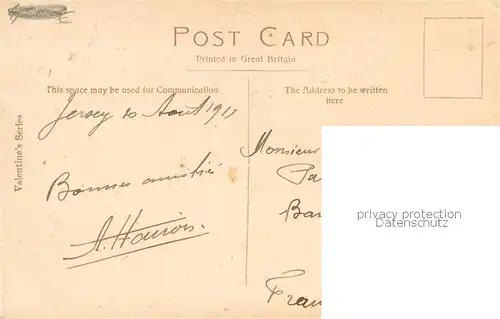 POST CARD
Printed in Great Britain
This space may be used for Communication
The Address to be written
here
Valentine's Series
Jersey 20 Aout 1911
Bonnes amitiés
Monsieur
Pa
Ba
Fran
privacy protection
Datenschutz